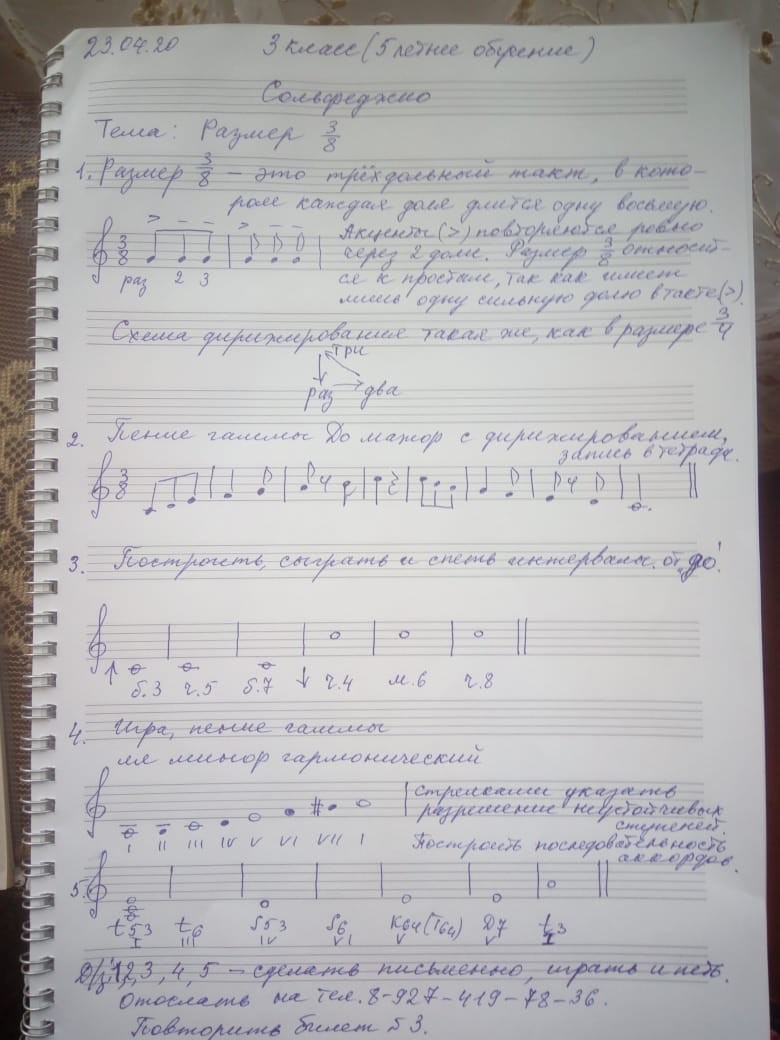 23.04.20 3 класс (5 летнее обучение)
Сольфеджио
Тема: Размер 3/8
1. Размер 3/8 — это трёхдольный такт, в кото-
ром каждая доля длится одну восьмую.
Акценты (>) повторяются ровно
через 2 доли. Размер 3/8 относит-
ся к простым, так как имеет
лишь одну сильную долю в такте (>).
3/8 > – – > – –
раз 2 3
Схема дирижирования такая же, как в размере 3/4
три
раз два
2. Пение гаммы До мажор с дирижированием,
запись в тетради.
3/8
3. Построить, сыграть и спеть интервалы от „до".
↑ б.3 ч.5 б.7 ↓ ч.4 м.6 ч.8
4. Игра, пение гаммы
ля минор гармонический
стрелками указать
разрешение неустойчивых
ступеней.
I II III IV V VI # VII I
Построить последовательность
аккордов.
5.
t53 t6 S53 S6 К64 (T64) Д7 t3
I III IV VI V V I
Д/з, 1, 2, 3, 4, 5 — сделать письменно, играть и петь.
Отослать на тел. 8-927-419-78-36.
Повторить билет 3.